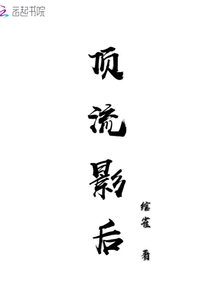 云起书院
顶流影后
绘雀 著